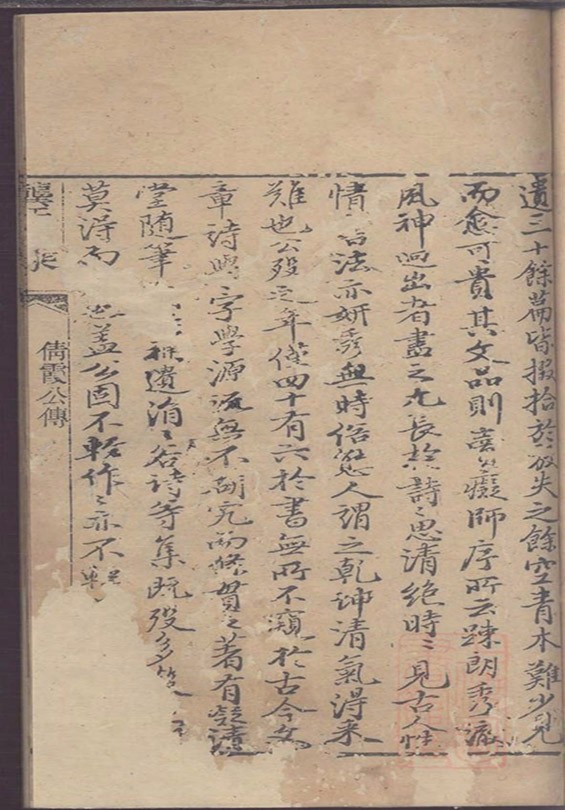 遺三十餘篇皆掇拾於散失之餘空青水難少見
而愈可貴其文品則 癡師序所云疎朗秀澈
風神迥出者盡之尤長於詩〻思清絕時〻見古人性
情 法亦妍秀無時俗態人謂之乾坤清氣得來
難也公歿之年僅四十有六於書無所不窺於古今文
章詩與字學源流無不研究而條貫之著有
堂隨筆 遺消〻谷詩等集既歿多
莫得而 蓋公固不輕作〻亦不輕
儁霞公傳